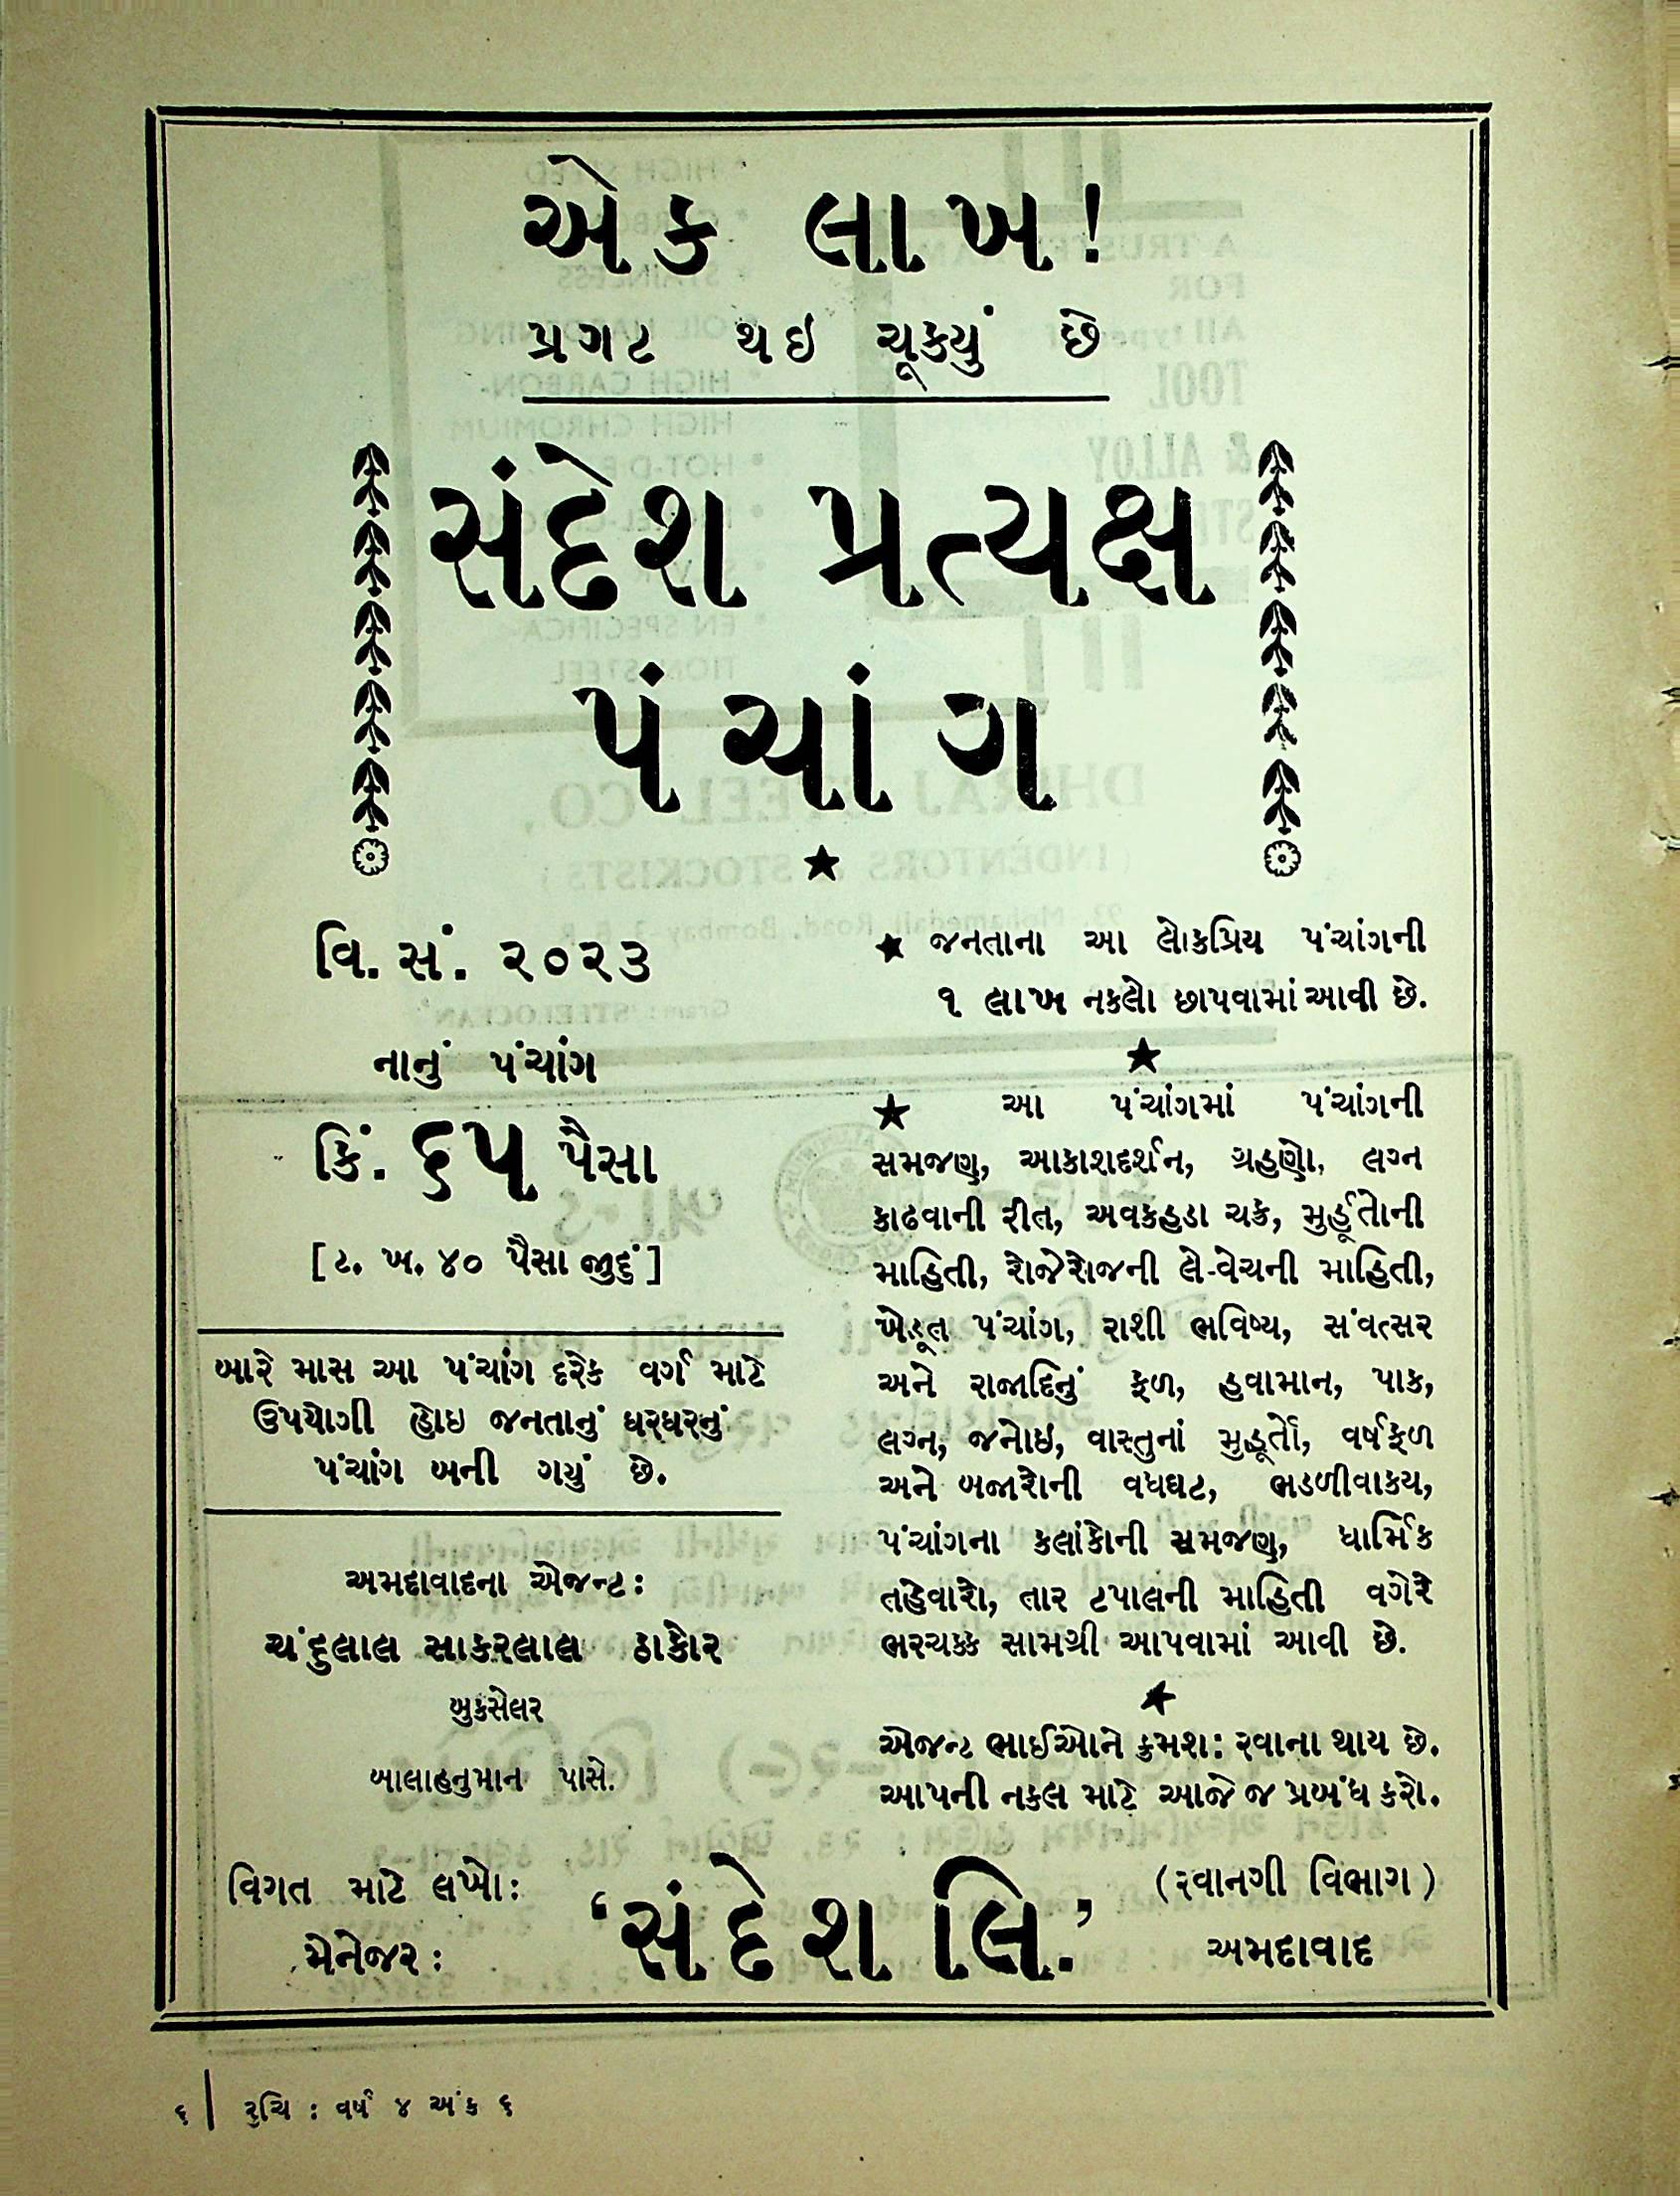 એક લાખ!
પ્રગટ થઇ ચૂક્યું છે
સંદેશ પ્રત્યક્ષ
પંચાંગ
★
વિ. સં. ૨૦૨૩
નાનું પંચાંગ
કિં. ૬૫ પૈસા
[ટ. ખ. ૪૦ પૈસા જુદું]
બારે માસ આ પંચાંગ દરેક વર્ગ માટે
ઉપયોગી હોઇ જનતાનું ઘરઘરનું
પંચાંગ બની ગયું છે.
અમદાવાદના એજન્ટ:
ચંદુલાલ સાકરલાલ ઠાકોર
બુકસેલર
બાલાહનુમાન પાસે.
★ જનતાના આ લોકપ્રિય પંચાંગની
૧ લાખ નકલો છાપવામાં આવી છે.
★
★ આ પંચાંગમાં પંચાંગની
સમજણ, આકાશદર્શન, ગ્રહણો, લગ્ન
કાઢવાની રીત, અવકહડા ચક્ર, મુર્હૂતોની
માહિતી, રોજેરોજની લે-વેચની માહિતી,
ખેડૂત પંચાંગ, રાશી ભવિષ્ય, સંવત્સર
અને રાજાદિનું ફળ, હવામાન, પાક,
લગ્ન, જનોઇ, વાસ્તુનાં મુહૂર્તો, વર્ષફળ
અને બજારોની વધઘટ, ભડળીવાક્ય,
પંચાંગના કલાંકોની સમજણ, ધાર્મિક
તહેવારો, તાર ટપાલની માહિતી વગેરે
ભરચક્ક સામગ્રી આપવામાં આવી છે.
★
એજન્ટ ભાઈઓને ક્રમશ: રવાના થાય છે.
આપની નકલ માટે આજે જ પ્રબંધ કરો.
વિગત માટે લખો:
મેનેજર:
‘સંદેશ લિ.’
(રવાનગી વિભાગ)
અમદાવાદ
૬ | રુચિ : વર્ષ ૪ અંક ૬